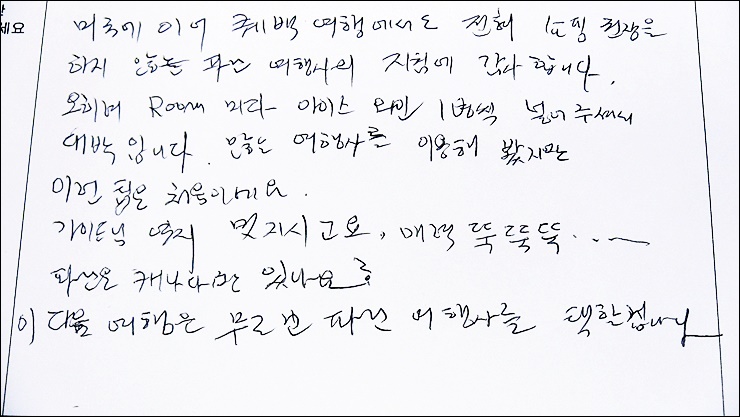 세요
미국에 이어 퀘백 여행에서도 전혀 쇼핑 권장을
하지 않는 파란 여행사의 지침에 감사 합니다.
오히려 Room 마다 아이스 와인 1병씩 넣어 주셔서
대박 입니다. 많은 여행사를 이용해 봤지만
이런 팁은 처음이네요.
가이드님 역시 멋지시고요, 매력 뚝뚝뚝....~
파란은 캐나다만 있나요?
이 다음 여행은 무조건 파란 여행사를 택할겁니다